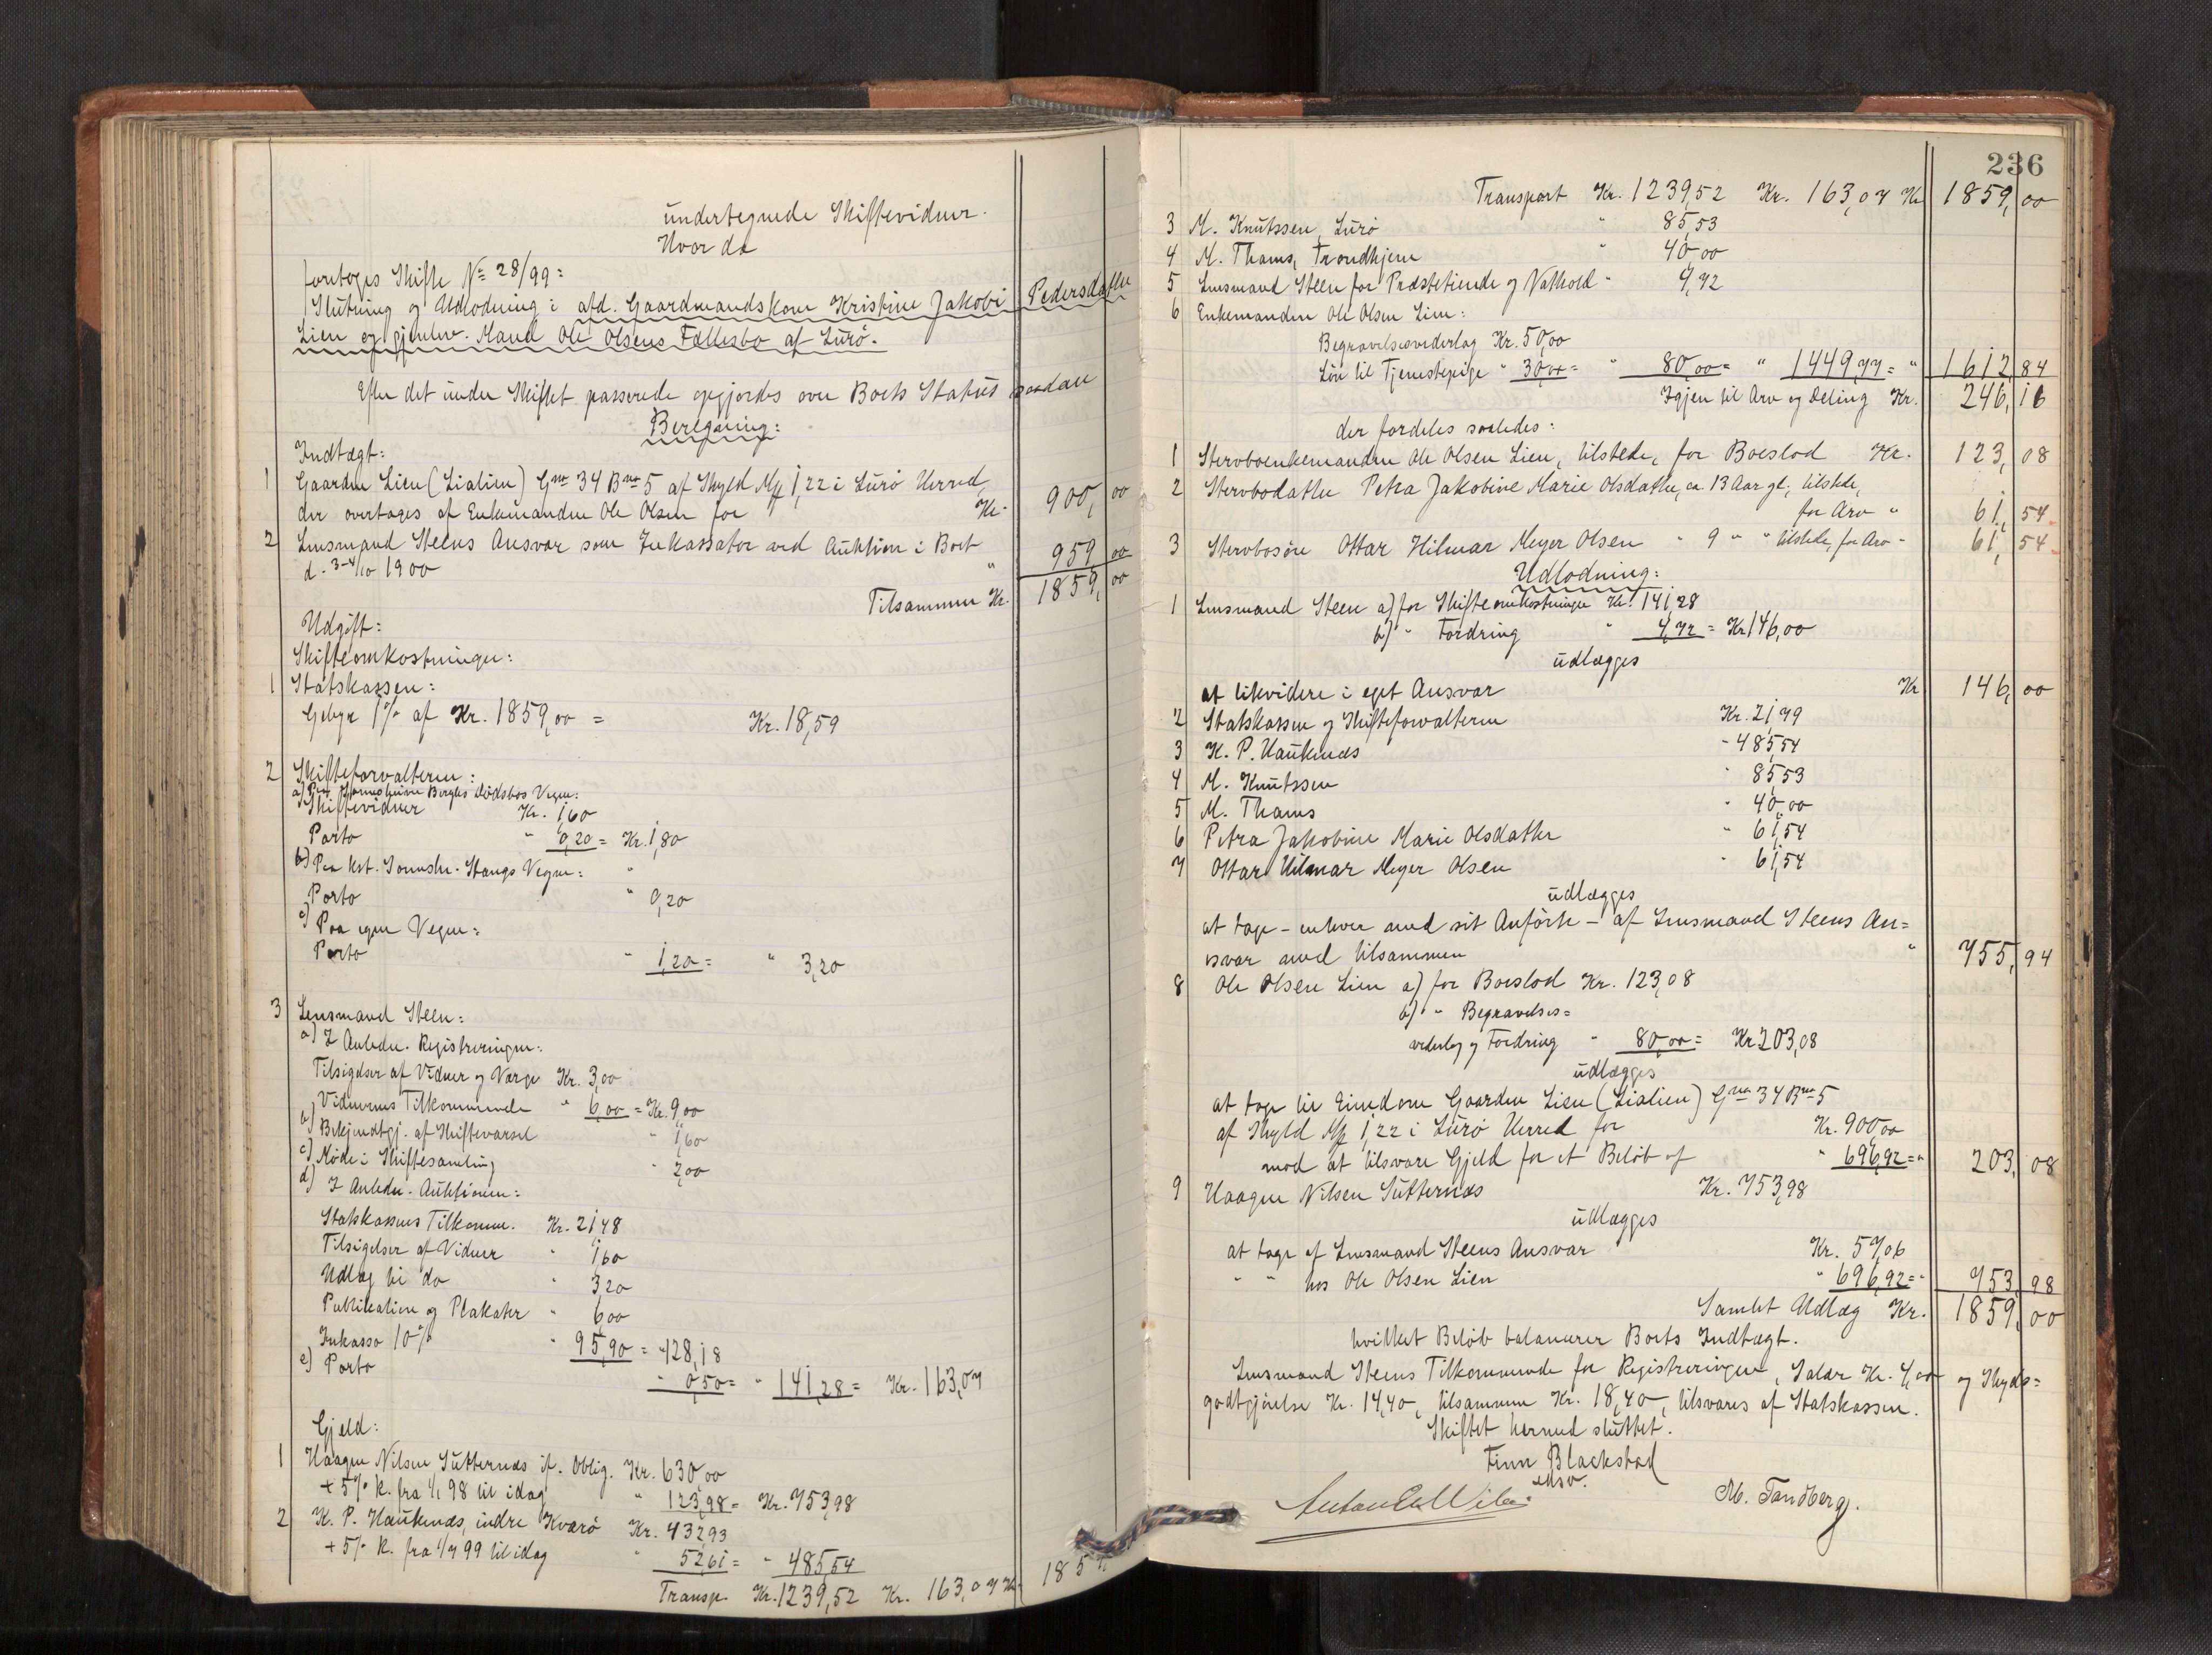 undertegnede Skiftevidner.
Hvorda
foretoges Skifte No 28/99:
Slutning og Udlodning i afd. Gaardmandskone Kristine Jakobi Pedersdatter
Lien og gjenlev. Mand Ole Olsens Fællesbo af Lurø.
Efter det under Skiftet passerede opgjordes over Boets Status saadan
Beregning:
Indtægt:
1 Gaarden Lien (Lialien) Gno 34 Bno 5 af Skyld Mk 1,22 i Lurø Herred,
der overtages af Enkemanden Ole Olsen for Kr. 900,00
2 Lensmand Steens Ansvar som Inkassator ved Auktion i Boet
d. 3-4/10 1900 " 959,00
Tilsammen Kr. 1859,00
Udgift:
Skifteomkostninger:
1 Statskassen:
Gebyr 1% af Kr. 1859,00 = Kr. 18,59
2 Skifteforvalteren:
a) Paa Sorenskriver Berghs Dødsbos Vegne:
Skiftevidner Kr. 1,60
Porto " 0,20 = Kr. 1,80
b) Paa kst. Sorenskr. Stangs Vegne:
Porto " 0,20
c) Paa egne Vegne:
Porto " 1,20 = " 3,20
3 Lensmand Steen:
a) I Anledn. Registreringen:
Tilsigelser af Vidner og Værge Kr. 3,00
Vidnernes Tilkommende " 6,00 = Kr. 9,00
b) Bekjendtgj. af Skiftevarsel " 1,60
c) Møde i Skiftesamling " 2,00
d) I Anledn. Auktionen:
Statskassens Tilkomm. Kr. 21,48
Tilsigelser af Vidner " 1,60
Udlæg til do " 3,20
Publikation og Plakater " 6,00
Inkasso 10% " 95,90 = " 128,18
e) Porto " 0,50 = " 141,28 = Kr. 163,07
Gjeld:
1 Haagen Nilsen Sutternes if. Oblig. Kr. 630,00
+ 5% R. fra 1/1 98 til idag " 123,98 = Kr. 753,98
2 K. P. Haukenæs, indre Kvarø Kr. 432,93
+ 5% R. fra 1/7 99 til idag " 52,61 = " 485,54
Transp. Kr. 1239,52 Kr. 163,07 Kr. 1859,
236
Transport Kr. 1239,52 Kr. 163,07 Kr 1859,00
3 M. Knutssen, Lurø " 85,53
4 M. Thams, Trondhjem " 40,00
5 Lensmand Steen for Præstetiende og Nathold " 4,72
6 Enkemanden Ole Olsen Lien:
Begravelsesvederlag Kr. 50,00
Løn til Tjenestepige " 30,00 = " 80,00 = " 1449,77 = " 1612,84
Igjen til Arv og Deling Kr. 246,16
der fordeles saaledes:
1 Stervboenkemanden Ole Olsen Lien, tilstede, for Boeslod Kr. 123,08
2 Stervbodatter Petra Jakobine Marie Olsdatter, ca. 13 Aar gl., tilstede,
for Arv " 61,54
3 Stervbosøn Ottar Hilmar Meyer Olsen " 9 " " tilstede, for Arv " 61,54
Udlodning:
1 Lensmand Steen a) for Skifteomkostninger Kr. 141,28
b) " Fordring " 4,72 = Kr 146,00
udlægges
at likvidere i eget Ansvar Kr 146,00
2 Statskassen og Skifteforvalteren Kr. 21,79
3 K. P. Haukenæs " 485,54
4 M. Knutssen " 85,53
5 M. Thams " 40,00
6 Petra Jakobine Marie Olsdatter " 61,54
7 Ottar Hilmar Meyer Olsen " 61,54
udlægges
at tage - enhver med sit Anførte - af Lensmand Steens An=
svar med tilsammen " 755,94
8 Ole Olsen Lien a) for Boeslod Kr. 123,08
b) " Begravelses=
vederlag og Fordring " 80,00 = Kr. 203,08
udlægges
at tage til Eiendom Gaarden Lien (Lialien) Gno 34 Bno 5
af Skyld Mk 1,22 i Lurø Herred for Kr. 900,00
mod at tilsvare Gjeld for et Beløb af " 696,92 = " 203,08
9 Haagen Nilsen Sutternes Kr. 753,98
udlægges
at tage af Lensmand Steens Ansvar Kr. 57,06
" " hos Ole Olsen Lien " 696,92 = " 753,98
Samlet Udlæg Kr. 1859,00
hvilket Beløb balancerer Boets Indtægt.
Lensmand Steens Tilkommende for Registreringen, Salær Kr. 4,00 og Skyds=
godtgjørelse Kr. 14,40, tilsammen Kr. 18,40, tilsvares af Statskassen.
Skiftet hermed sluttet.
Finn Blackstad
M. Tandberg.